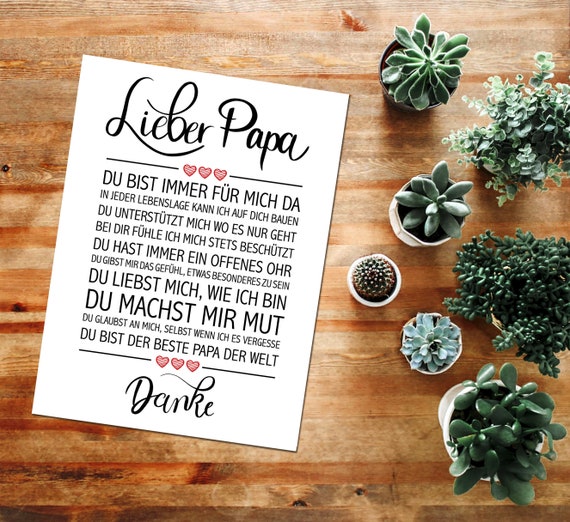 Lieber Papa
DU BIST IMMER FÜR MICH DA
IN JEDER LEBENSLAGE KANN ICH AUF DICH BAUEN
DU UNTERSTÜTZT MICH WO ES NUR GEHT
BEI DIR FÜHLE ICH MICH STETS BESCHÜTZT
DU HAST IMMER EIN OFFENES OHR
DU GIBST MIR DAS GEFÜHL, ETWAS BESONDERES ZU SEIN
DU LIEBST MICH, WIE ICH BIN
DU MACHST MIR MUT
DU GLAUBST AN MICH, SELBST WENN ICH ES VERGESSE
DU BIST DER BESTE PAPA DER WELT
Danke